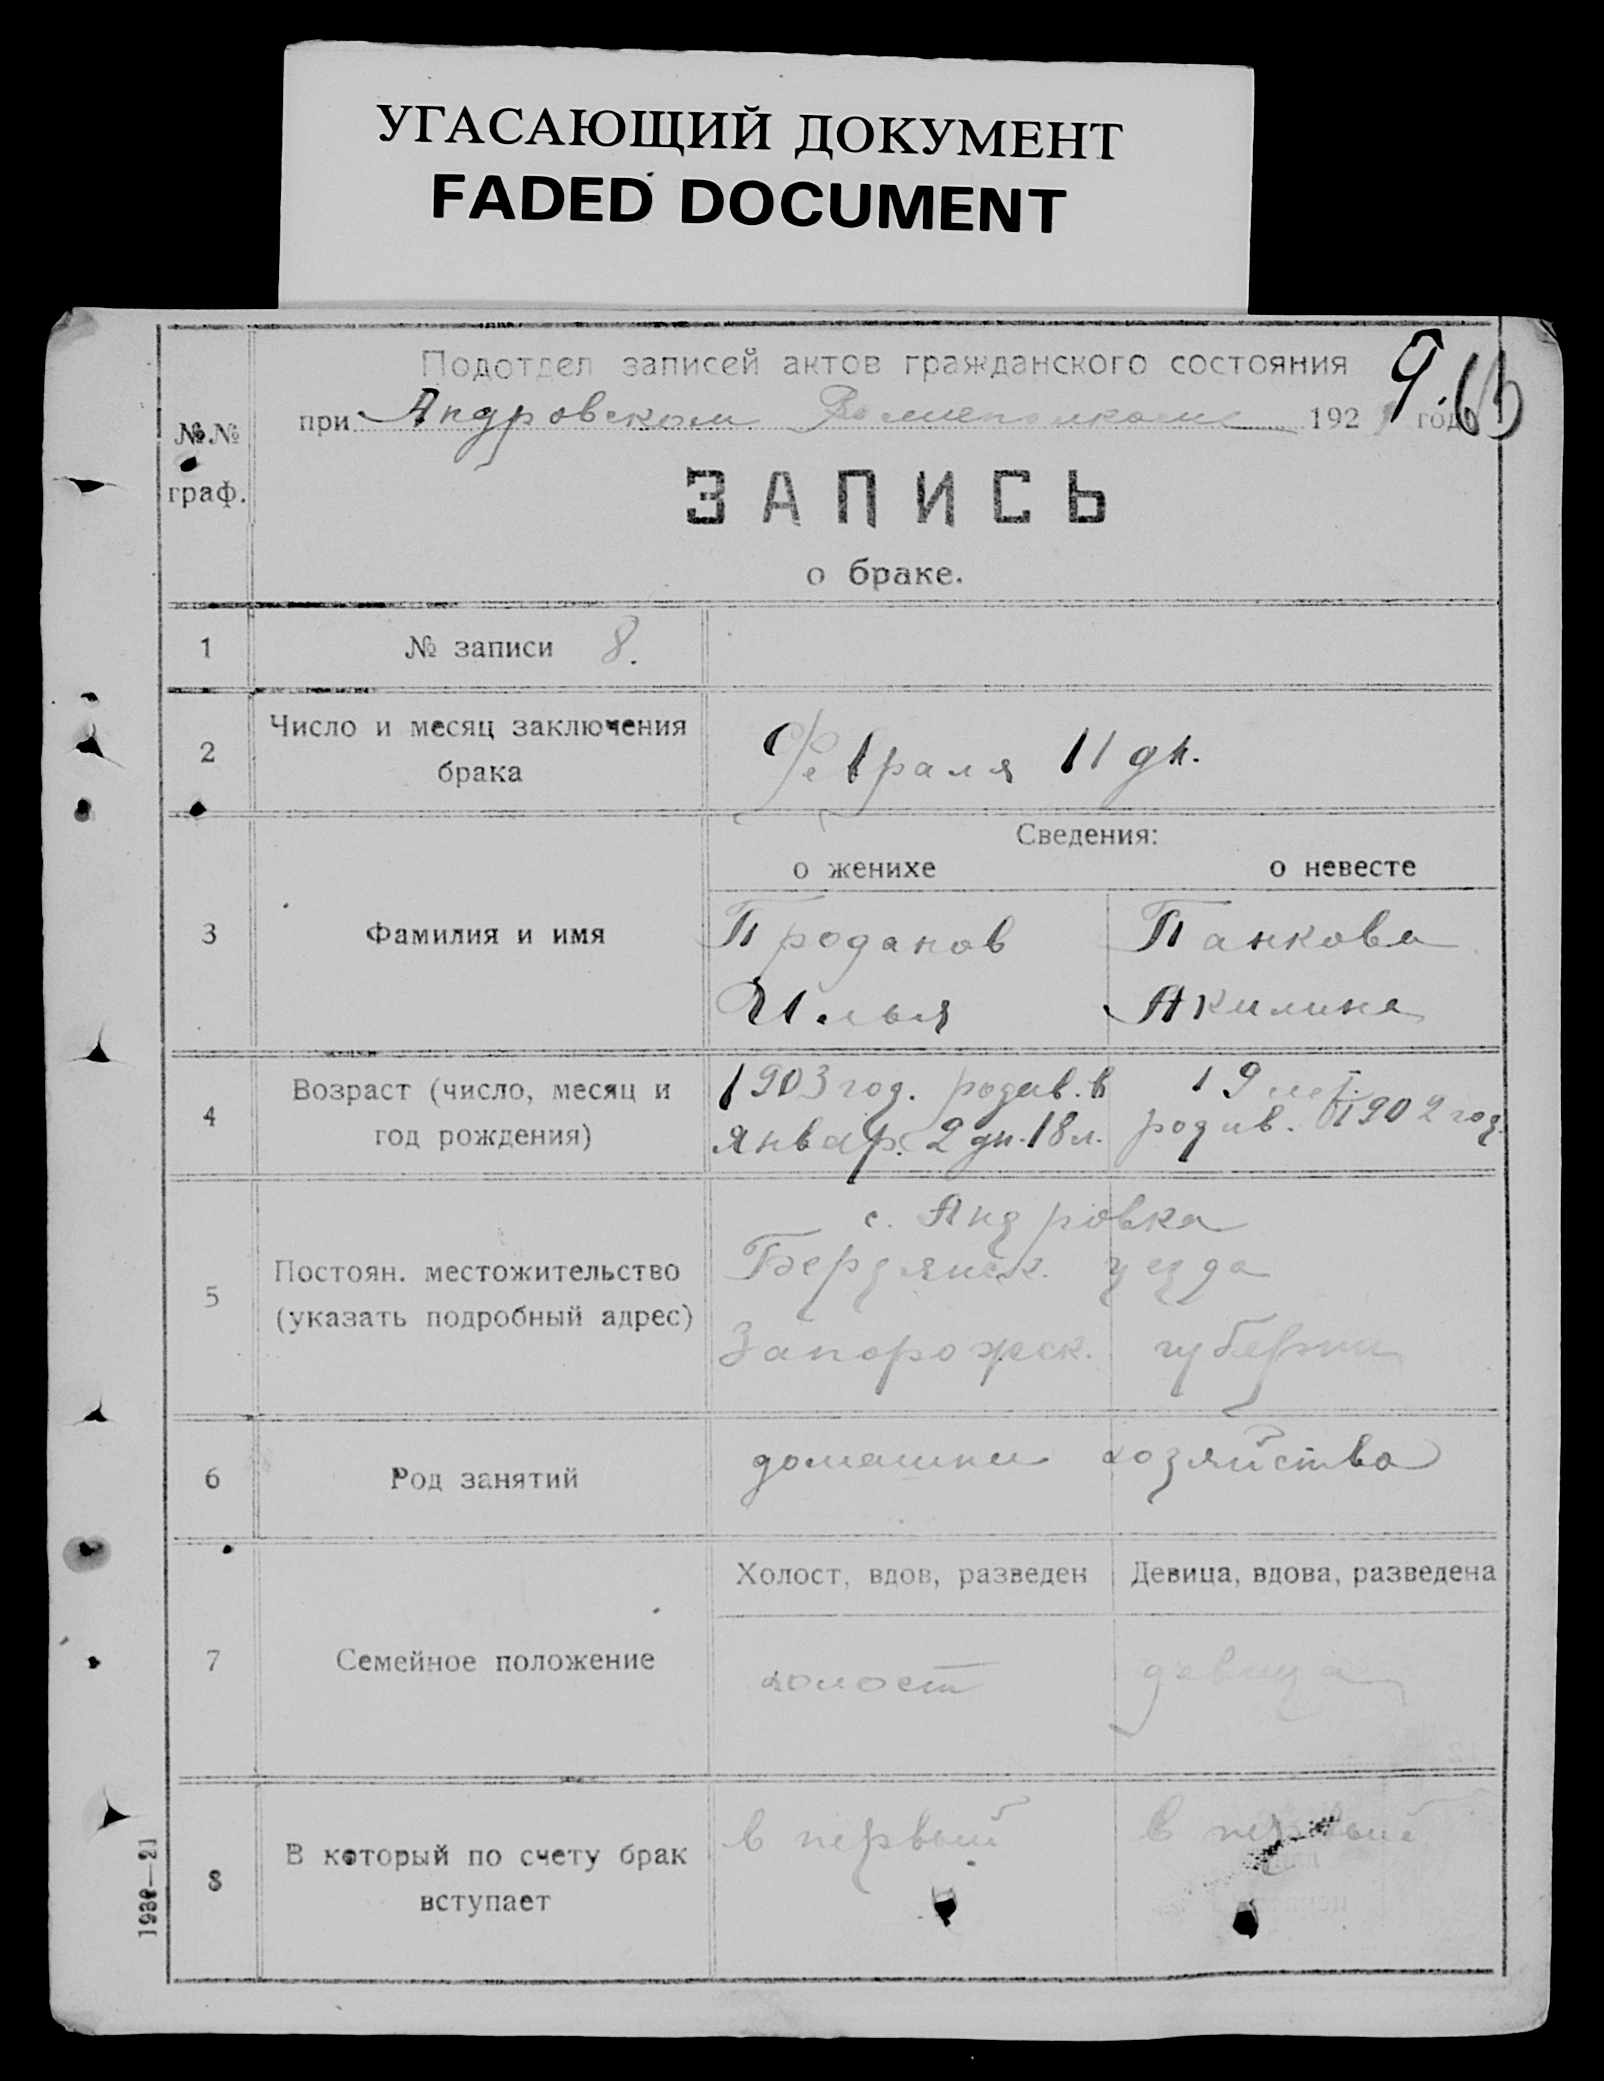 УГАСАЮЩИЙ ДОКУМЕНТ
FADED DOCUMENT
Подотдел записей актов гражданского состояния
при Андровском 192 год
№№
граф.
ЗАПИСЬ
о браке.
1
№ записи 8.
2
Число и месяц заключения
брака
Февраля 11 дн.
Сведения:
о женихе
о невесте
3
Фамилия и имя
Проданов
Илья
Панкова
Акилина
4
Возраст (число, месяц и
год рождения)
1903 год. родив. в
январ. 2 дн. 18 л.
19 лет.
родив. 1902 год.
5
Постоян. местожительство
(указать подробный адрес)
с. Андровка
Бердянск. уезда
Запорожск. губернии
6
Род занятий
домашни хозяйство
7
Семейное положение
Холост, вдов, разведен
Девица, вдова, разведена
холост
девица
8
В который по счету брак
вступает
в первый
в первый